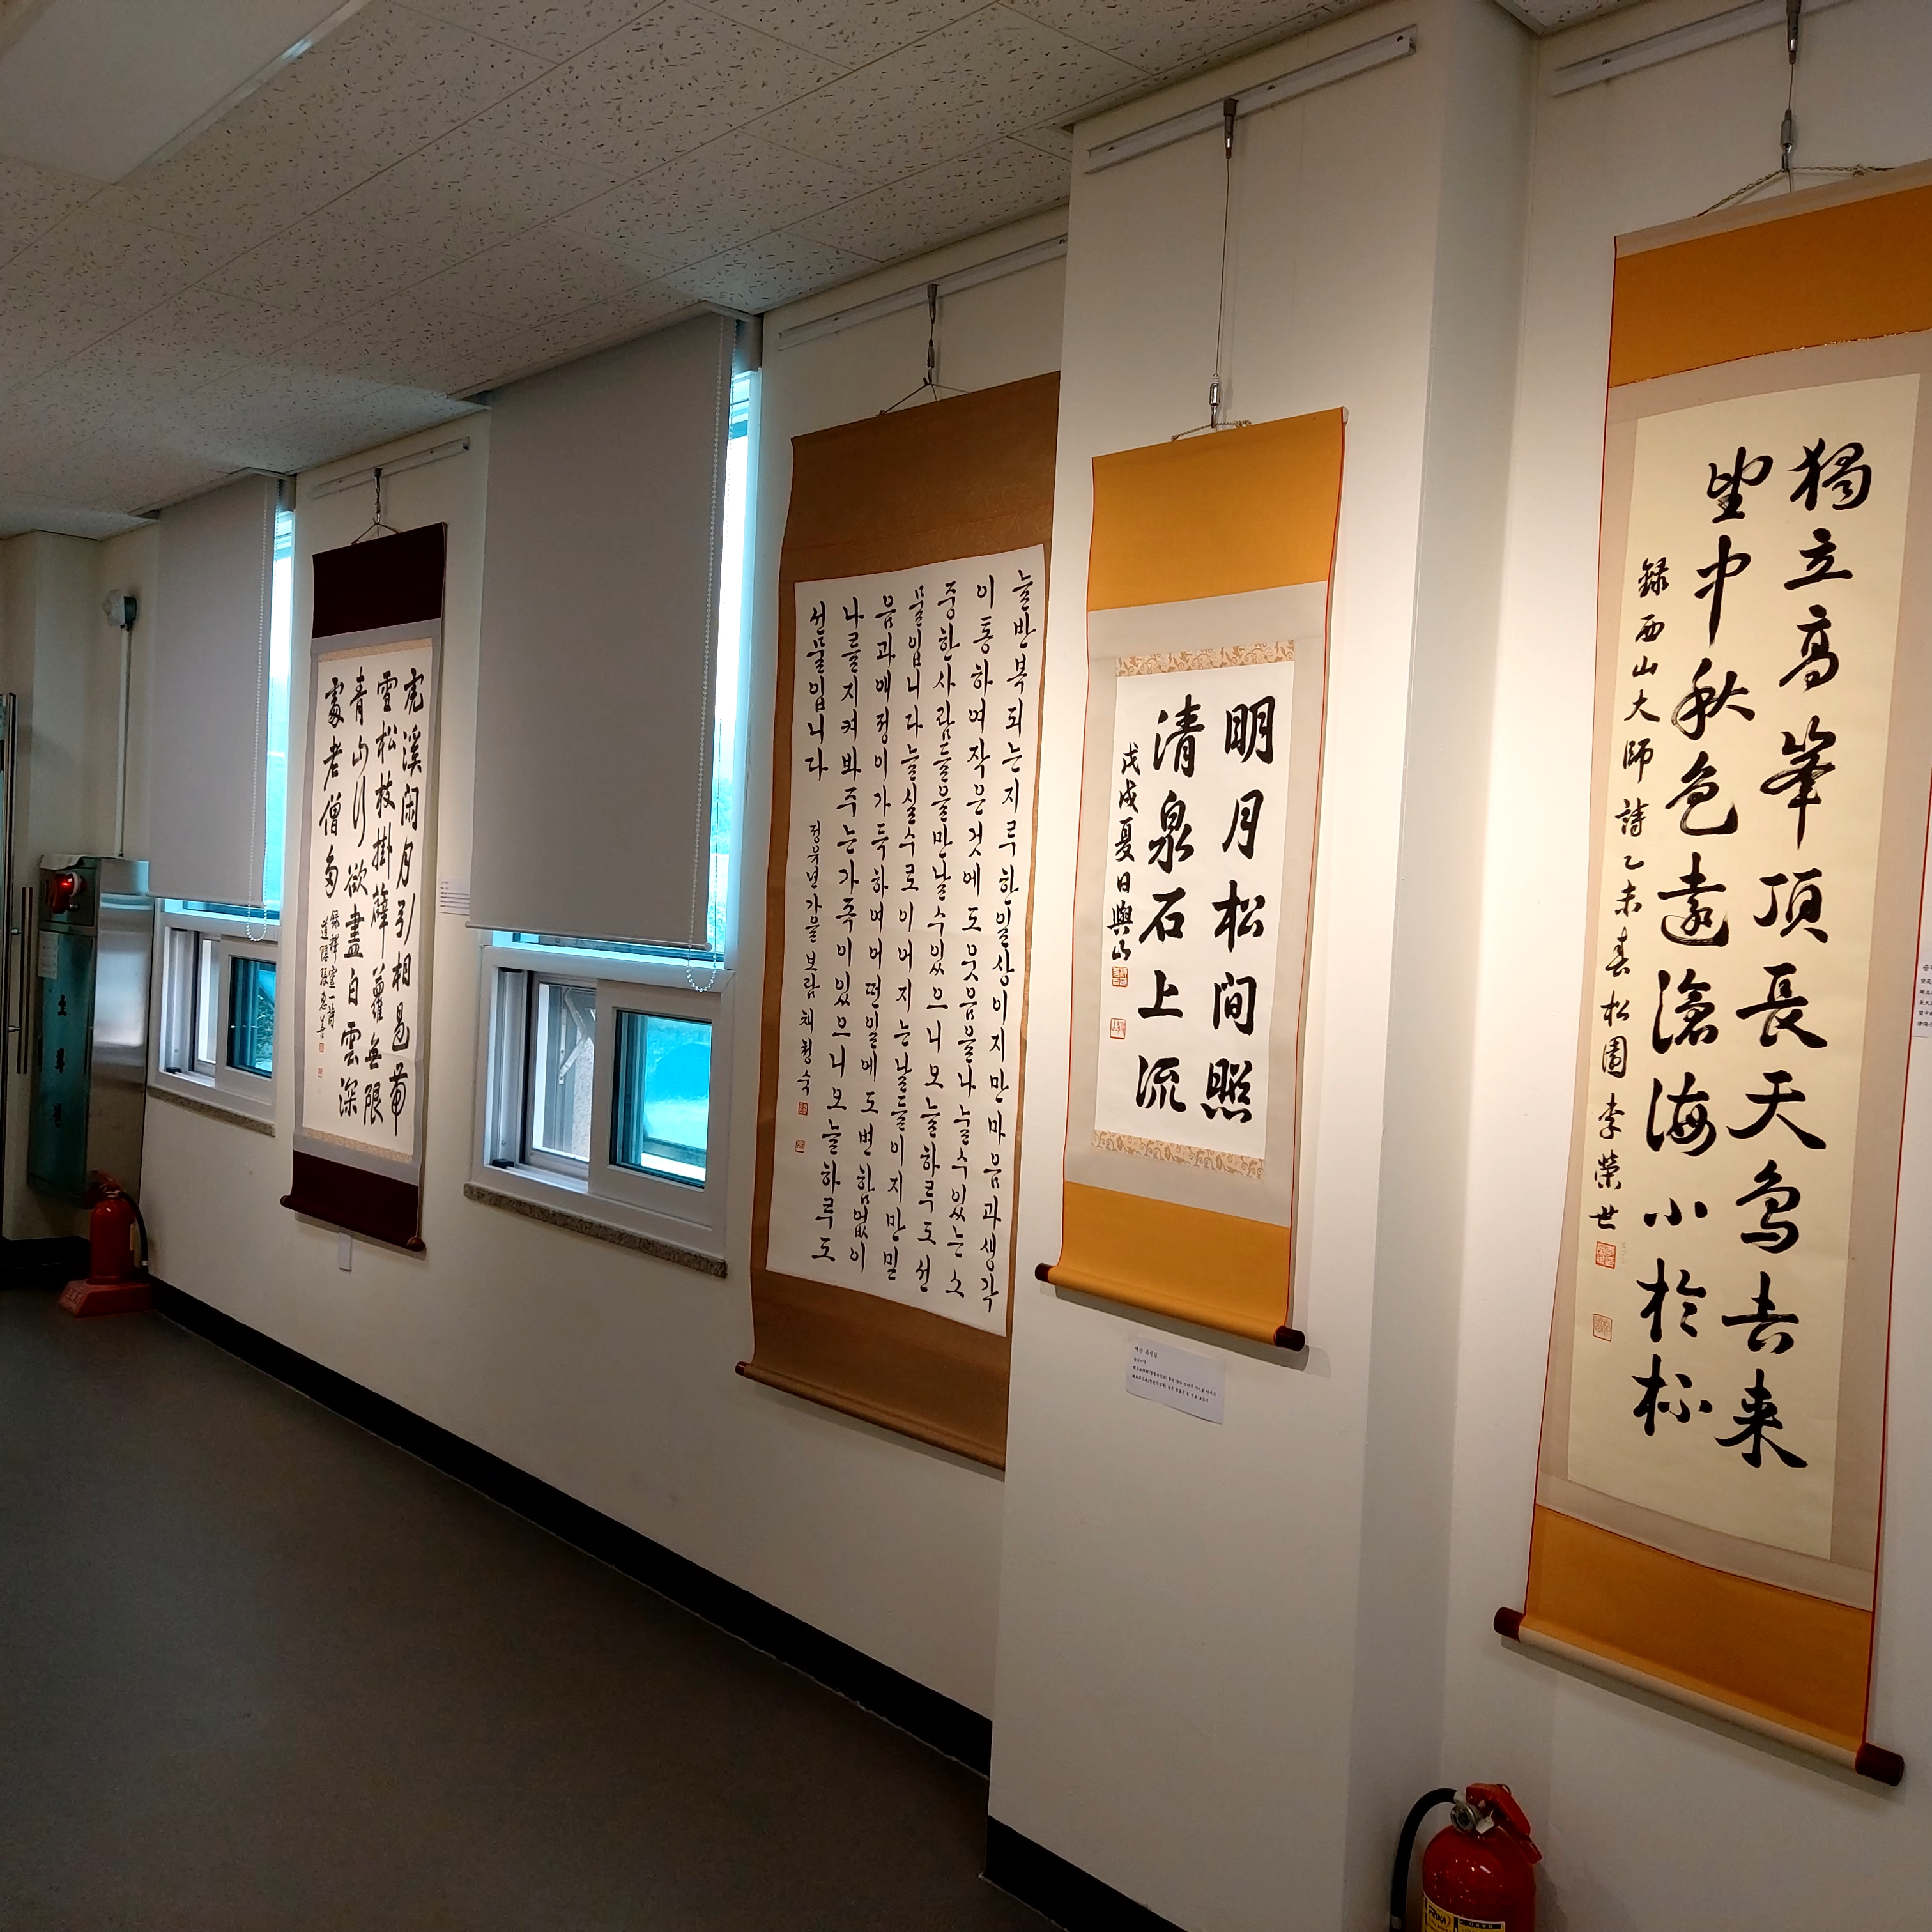 獨立高峯頂長天鳥去来
望中秋色遠滄海小於杯
録西山大師詩乙未春松園李榮世
明月松間照
清泉石上流
戊戌夏日
늘반복되는지루한일상이지만마음과생각
이통하여작은것에도웃음을나눌수있는소
중한사람들을만날수있으니오늘하루도선
물입니다늘실수로이어지는날들이지만믿
음과애정이가득하여어떤일에도변함없이
나를지켜봐주는가족이있으니오늘하루도
선물입니다
정유년가을 보람 채청숙
虎溪閑月引相過帶
雪松枝掛薜蘿無限
青山行欲盡白雲深
處老僧多
録釋靈一詩
소화전